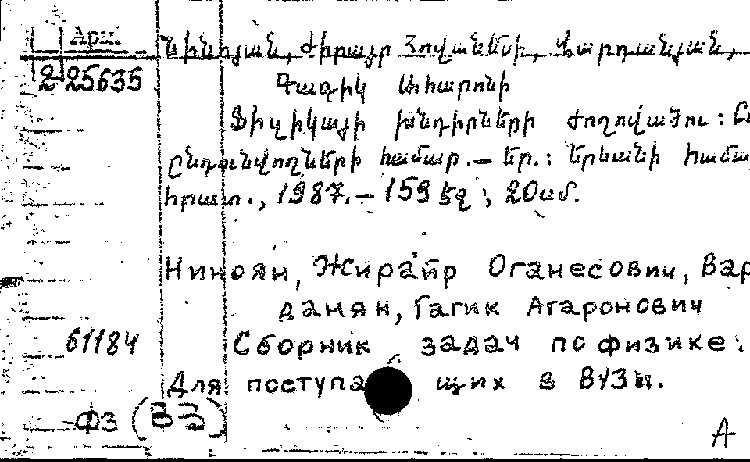 Арм.
Նինոյան, Ժիրայր Հովհաննեսի, Վարդանյան,
2 25635 Գագիկ Ահարոնի
Ֆիզիկայի խնդիրների ժողովածու:
ընդունվողների համար. — Եր.: Երևանի համա
հրատ., 1987. — 159 էջ; 20սմ.
Ниноян, Жирайр Оганесович, Вар
данян, Гагик Агаронович
61184 Сборник задач по физике:
Для поступа щих в ВУЗы.
ФЗ (ВЗ)
А